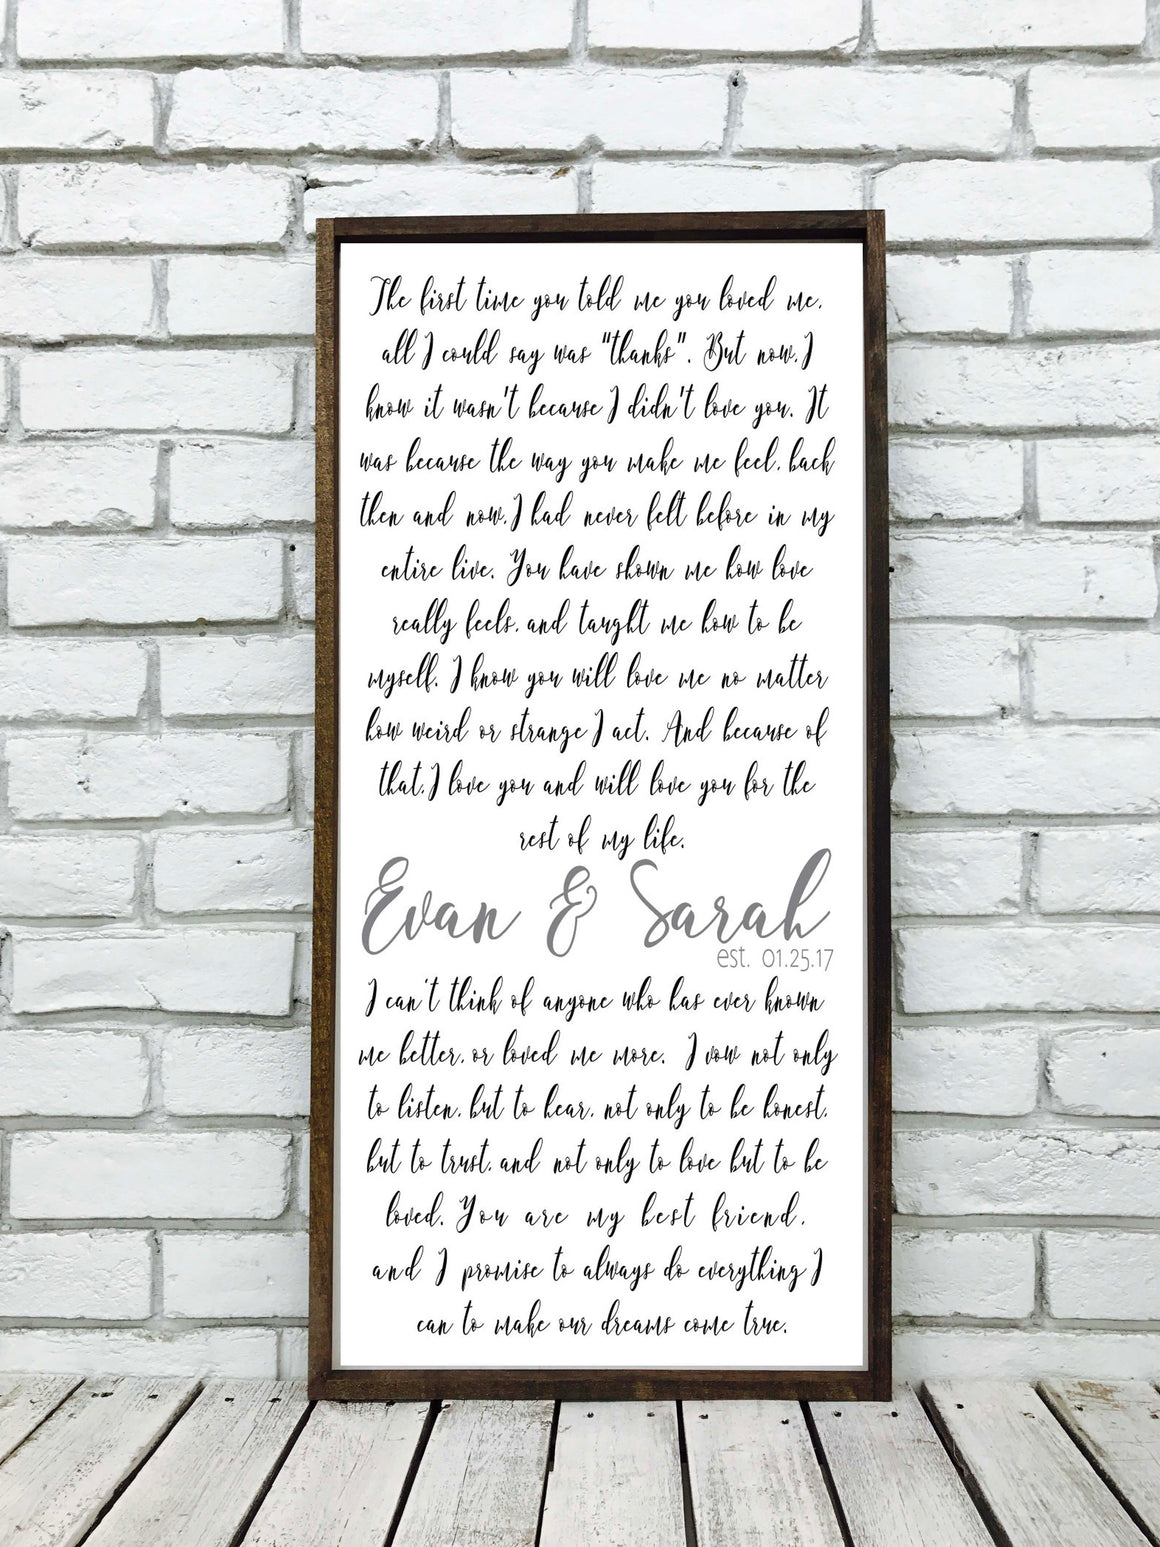 The first time you told me you loved me,
all I could say was "thanks". But now, I
know it wasn't because I didn't love you. It
was because the way you make me feel, back
then and now, I had never felt before in my
entire live. You have shown me how love
really feels, and taught me how to be
myself. I know you will love me no matter
how weird or strange I act. And because of
that, I love you and will love you for the
rest of my life.
Evan & Sarah
est. 01.25.17
I can't think of anyone who has ever known
me better, or loved me more. I vow not only
to listen, but to hear, not only to be honest,
but to trust, and not only to love but to be
loved. You are my best friend,
and I promise to always do everything I
can to make our dreams come true.